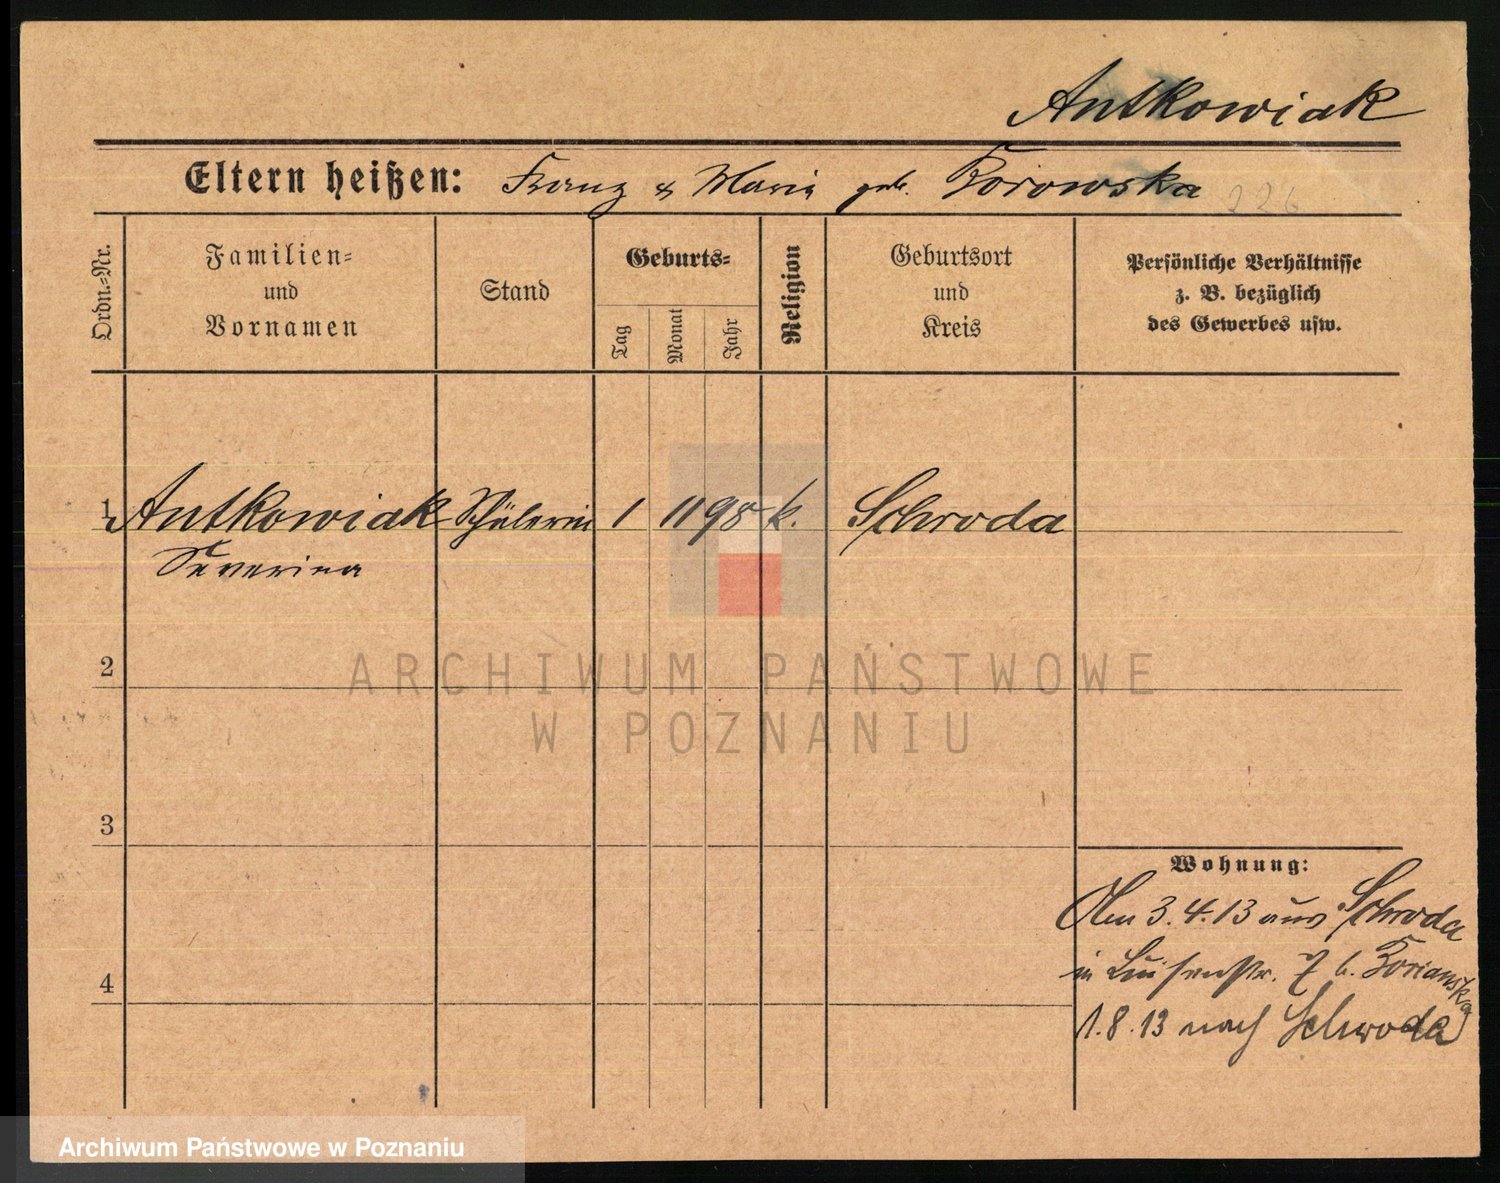 Antkowiak
Eltern heißen: Franz & Maria geb. Borowska 226
Ordn.-Nr.
Familien-
und
Vornamen
Stand
Geburts-
Tag
Monat
Jahr
Religion
Geburtsort
und
Kreis
Persönliche Verhältnisse
z. B. bezüglich
des Gewerbes usw.
1 Antkowiak Schülerin 1 11 98 k. Schroda
Severina
2
ARCHIWUM PAŃSTWOWE
W POZNANIU
3
Wohnung:
Am 3.4.13 aus Schroda
in Luisenstr. 7 b.
4
1.8.13 nach Schroda
Archiwum Państwowe w Poznaniu